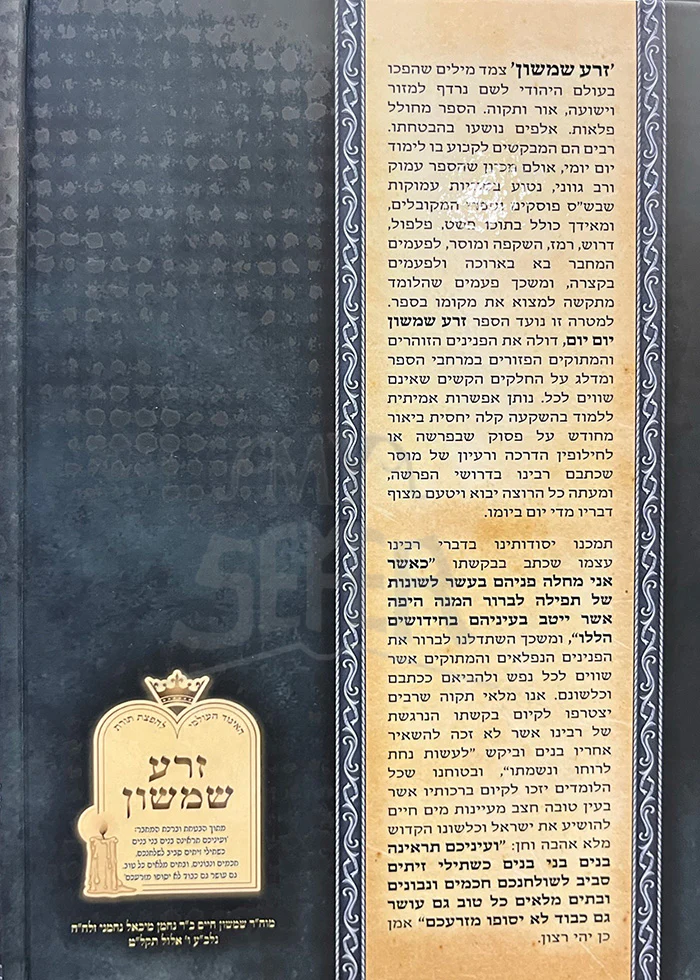 'זרע שמשון' צמד מילים שהפכו
בעולם היהודי לשם נרדף למזור
וישועה, אור ותקוה. הספר מחולל
פלאות. אלפים נושעו בהבטחתו.
רבים הם המבקשים לקבוע בו לימוד
יום יומי, אולם מכיון שהספר עמוק
ורב גווני, נטוע בסוגיות עמוקות
שבש״ס פוסקים וספרי המקובלים,
ומאידך כולל בתוכו פשט, פלפול,
דרוש, רמז, השקפה ומוסר, לפעמים
המחבר בא בארוכה ולפעמים
בקצרה, ומשכך פעמים שהלומד
מתקשה למצוא את מקומו בספר.
למטרה זו נועד הספר זרע שמשון
יום יום, דולה את הפנינים הזוהרים
והמתוקים הפזורים במרחבי הספר
ומדלג על החלקים הקשים שאינם
שווים לכל. נותן אפשרות אמיתית
ללמוד בהשקעה קלה יחסית ביאור
מחודש על פסוק שבפרשה או
לחילופין הדרכה ורעיון של מוסר
שכתבם רבינו בדרושי הפרשה,
ומעתה כל הרוצה יבוא ויטעם מצוף
דבריו מדי יום ביומו.
תמכנו יסודותינו בדברי רבינו
עצמו שכתב בבקשתו ״כאשר
אני מחלה פניהם בעשר לשונות
של תפילה לברור המנה היפה
אשר ייטב בעיניהם בחידושים
הללו״, ומשכך השתדלנו לברור את
הפנינים הנפלאים והמתוקים אשר
שווים לכל נפש ולהביאם ככתבם
וכלשונם. אנו מלאי תקוה שרבים
יצטרפו לקיום בקשתו הנרגשת
של רבינו אשר לא זכה להשאיר
אחריו בנים וביקש ״לעשות נחת
לרוחו ונשמתו״, ובטוחנו שכל
הלומדים יזכו לקיום ברכותיו אשר
בעין טובה חצב מעיינות מים חיים
להושיע את ישראל וכלשונו הקדוש
מלא אהבה וחן: ״ועיניכם תראינה
בנים בני בנים כשתילי זיתים
סביב לשולחנכם חכמים ונבונים
ובתים מלאים כל טוב גם עושר
גם כבוד לא יסופו מזרעכם״ אמן
כן יהי רצון.
האיגוד העולמי להפצת תורת
זרע
שמשון
מתוך הבטחת וברכת המחבר:
'ועיניכם תראינה בנים בני בנים
כשתילי זיתים סביב לשלחנכם,
חכמים ונבונים, ובתים מלאים כל טוב,
גם עושר גם כבוד לא יסופו מזרעכם'
מוה״ר שמשון חיים ב״ר נחמן מיכאל נחמני זלה״ה
נלב״ע ו' אלול תקל״ט